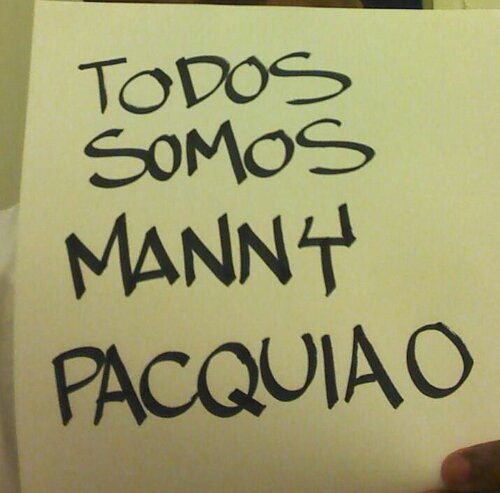 TODOS
SOMOS
MANNY
PACQUIAO